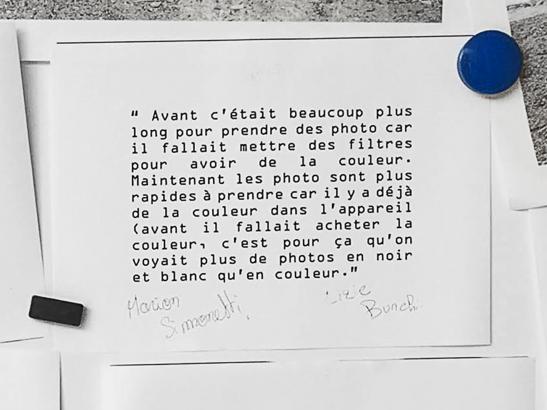 “ Avant c'était beaucoup plus
long pour prendre des photo car
il fallait mettre des filtres
pour avoir de la couleur.
Maintenant les photo sont plus
rapides à prendre car il y a déjà
de la couleur dans l'appareil
(avant il fallait acheter la
couleur, c'est pour ça qu'on
voyait plus de photos en noir
et blanc qu'en couleur."
Marion
Simonetti